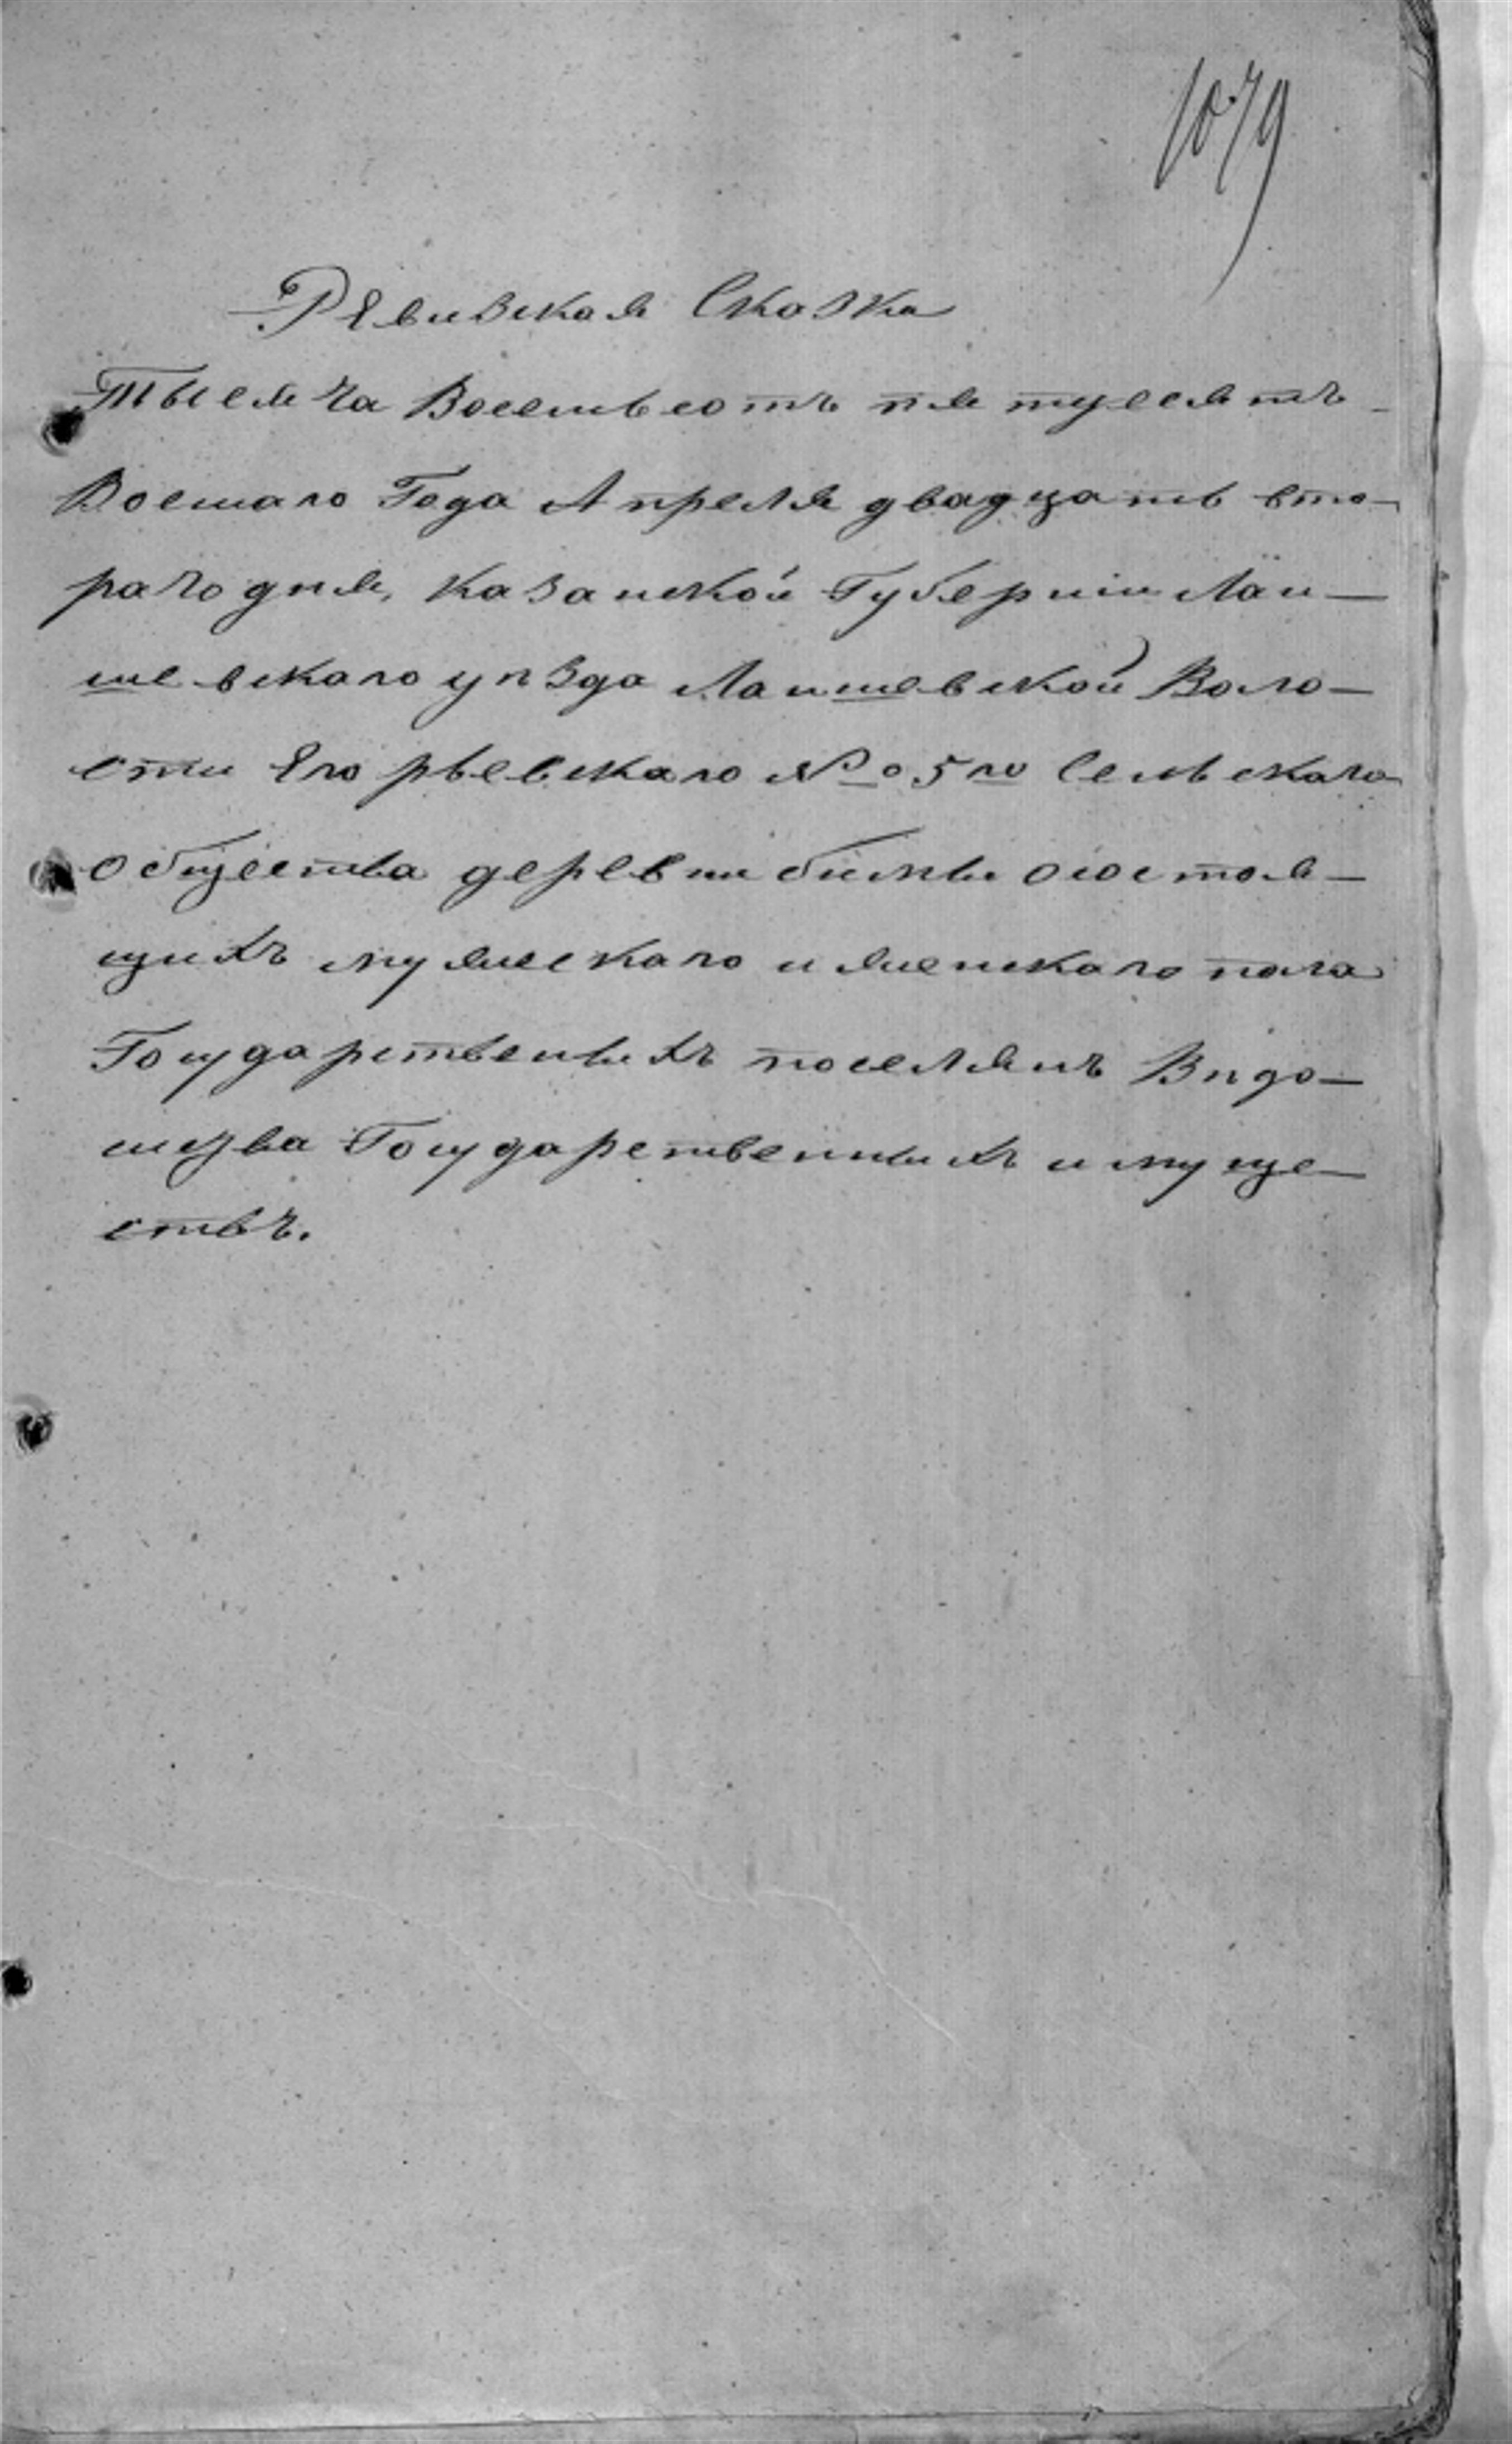 1079
Ревизская Сказка
Тысяча Восемьсотъ пятдесятъ
Восмаго Года Апреля двадцать вто-
раго дня, казанской Губерніи Лаи-
шевскаго уѣзда Лаишевской Воло-
сти Егорьевскаго № 5го Сельскаго
общества деревни о состоя-
щихъ мужескаго и женскаго пола
Государственыхъ поселянъ Вѣдо-
мства Государственныхъ имуще-
ствъ.